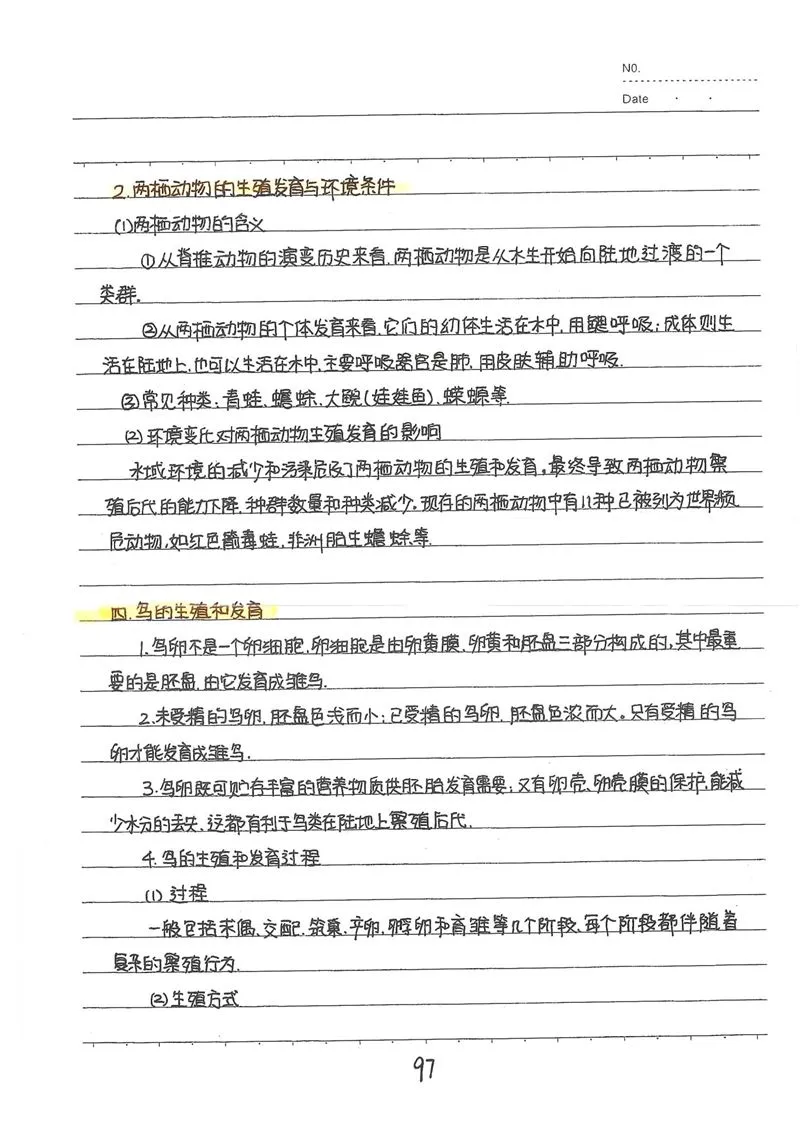 NO.
Date
2.两栖动物的生殖发育与环境条件
(1)两栖动物的含义
①从脊椎动物的演变历史来看,两栖动物是从水生开始向陆地过渡的一个
类群.
②从两栖动物的个体发育来看,它们的幼体生活在水中,用鳃呼吸;成体则生
活在陆地上,也可以生活在水中,主要呼吸器官是肺,用皮肤辅助呼吸.
③常见种类:青蛙、蟾蜍、大鲵(娃娃鱼)、蝾螈等.
(2)环境变化对两栖动物生殖发育的影响
水域环境的减少和污染危及了两栖动物的生殖和发育,最终导致两栖动物繁
殖后代的能力下降,种群数量和种类减少。现在的两栖动物中有11种已被列为世界频
危动物,如红色箭毒蛙,非洲胎生蟾蜍等.
四.鸟的生殖和发育
1.鸟卵不是一个卵细胞,卵细胞是由卵黄膜、卵黄和胚盘三部分构成的,其中最重
要的是胚盘,由它发育成雏鸟.
2.未受精的鸟卵,胚盘色浅而小;已受精的鸟卵,胚盘色浓而大。只有受精的鸟
卵才能发育成雏鸟.
3.鸟卵既可贮存丰富的营养物质供胚胎发育需要;又有卵壳、卵壳膜的保护,能减
少水分的丢失,这都有利于鸟类在陆地上繁殖后代.
4.鸟的生殖和发育过程
(1)过程
一般包括求偶、交配、筑巢、产卵、孵卵和育雏等几个阶段、每个阶段都伴随着
复杂的繁殖行为.
(2)生殖方式
97